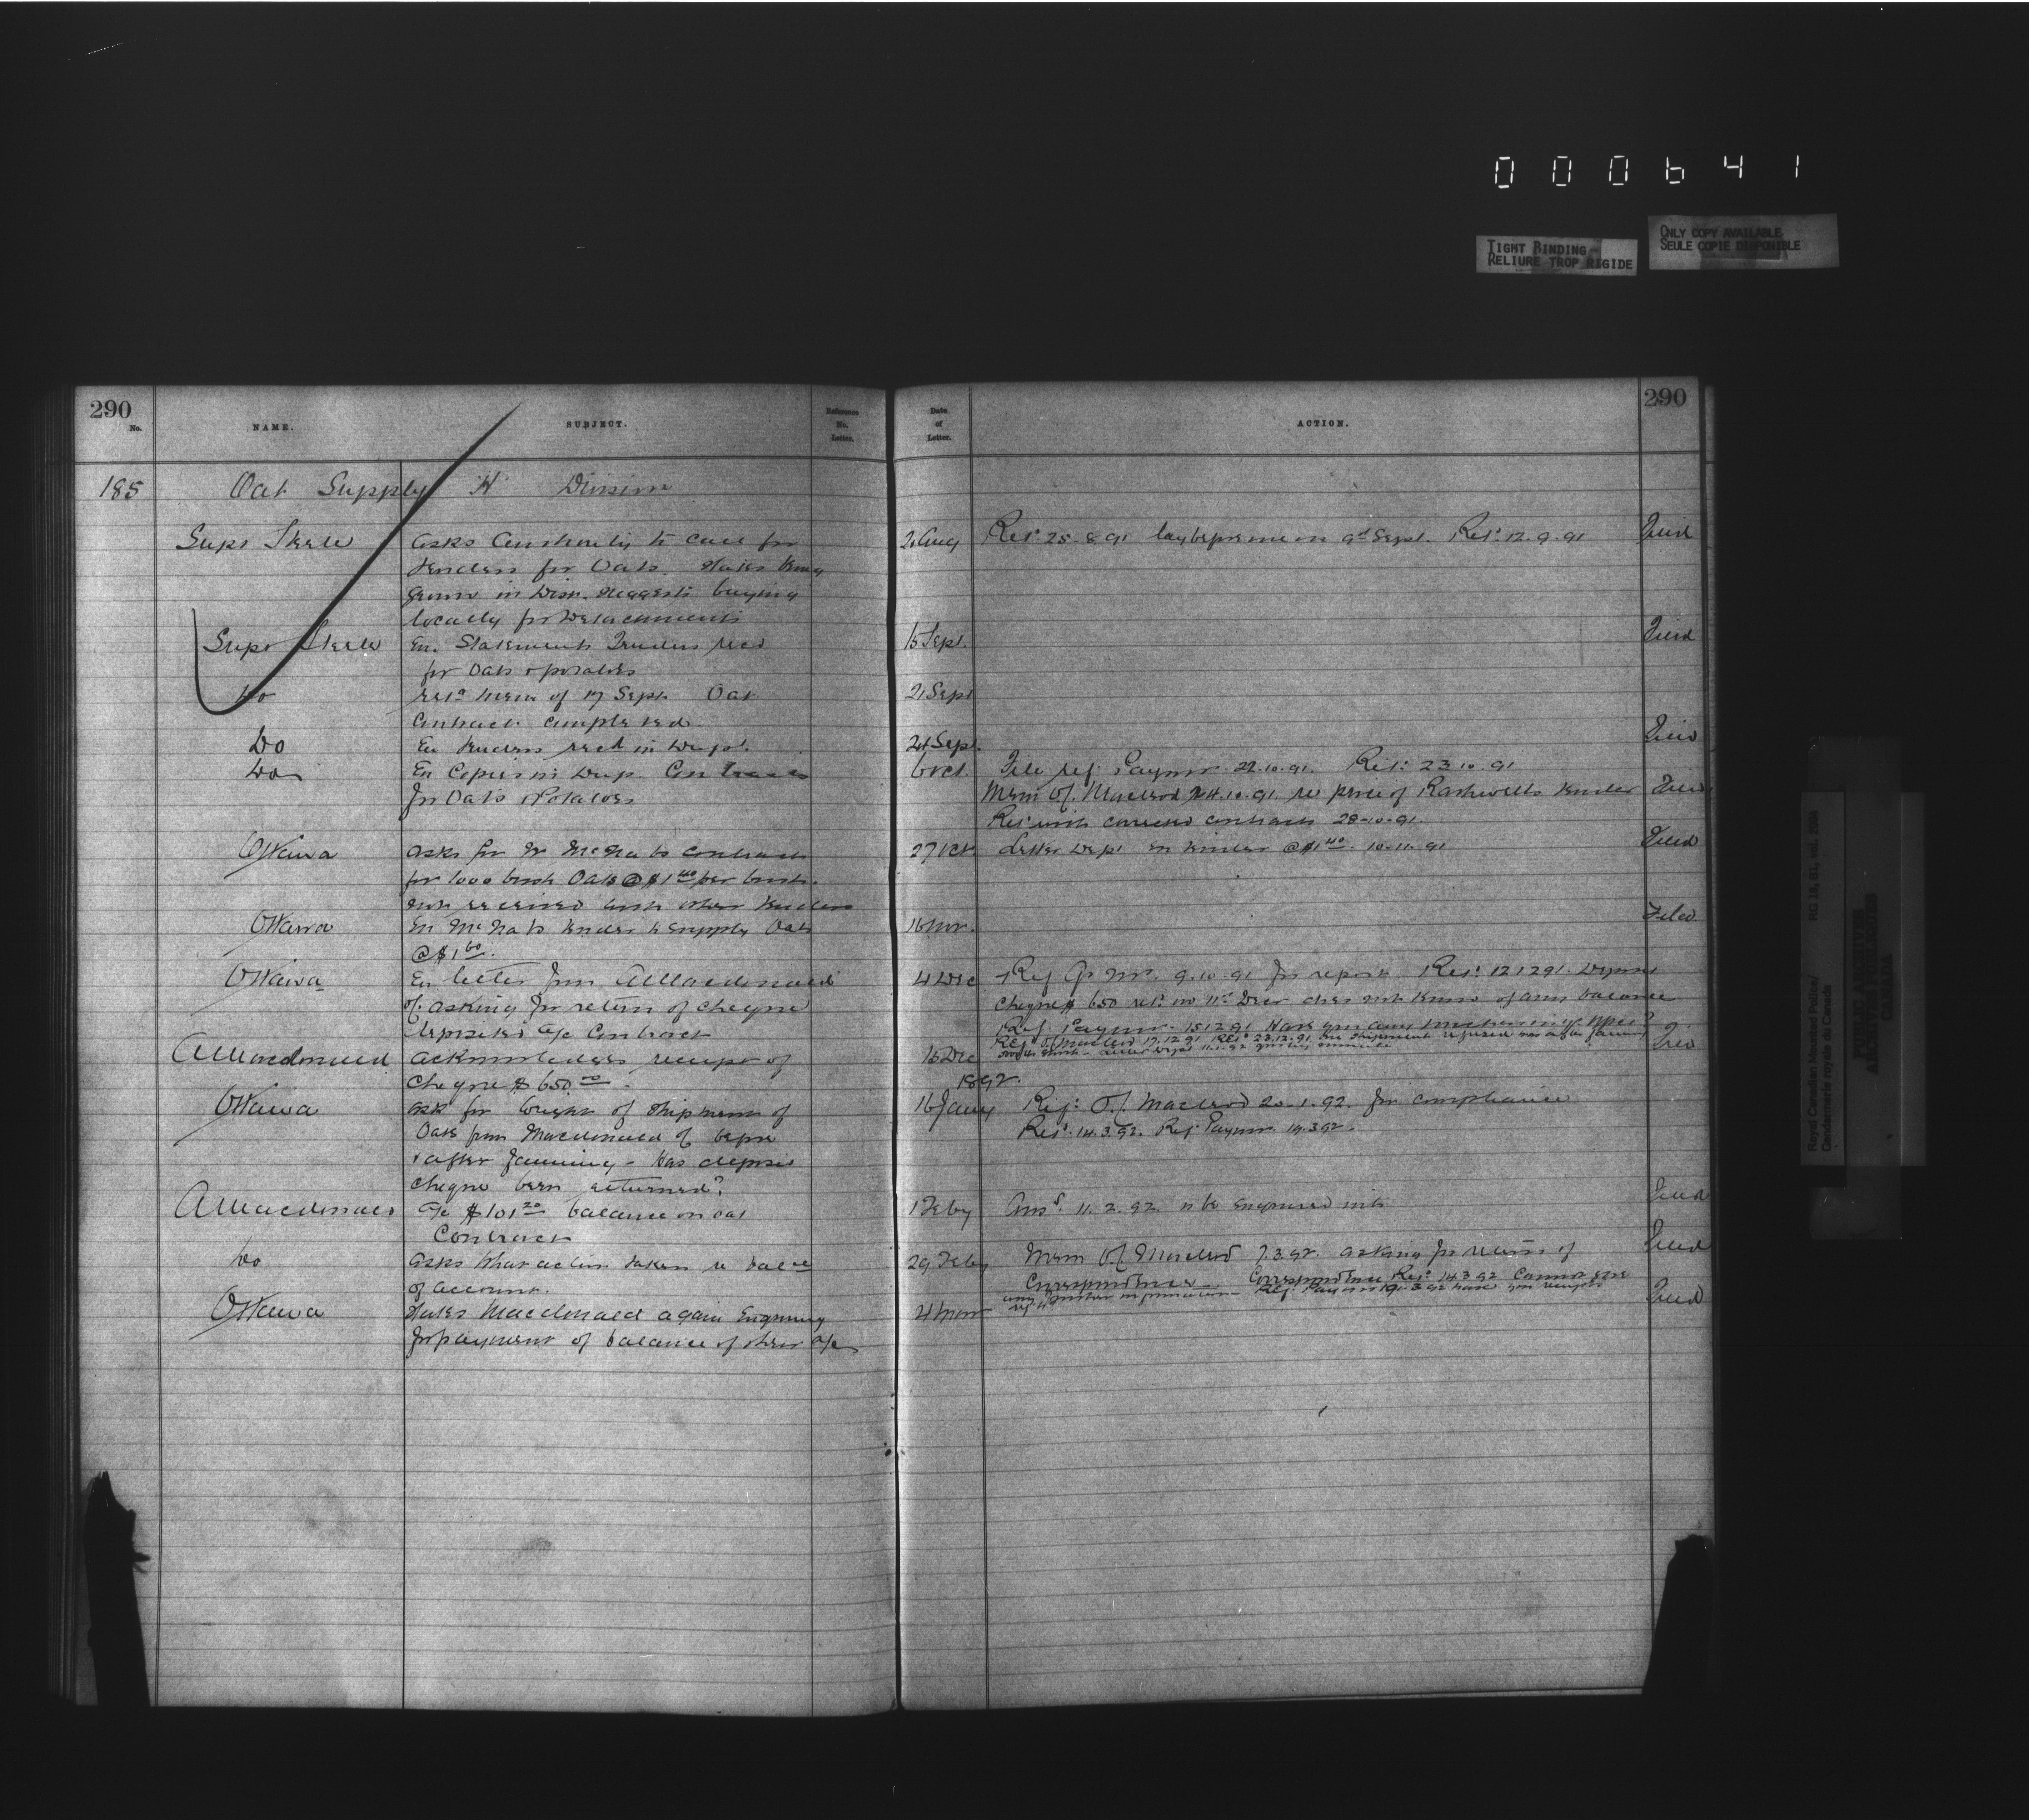 000641
TIGHT BINDING
RELIURE TROP RIGIDE
ONLY COPY AVAILABLE
SEULE COPIE DISPONIBLE
290
No.
NAME.
SUBJECT.
Reference
No.
Letter.
Date
of
Letter.
ACTION.
290
185 Oat Supply "H" Division
Supt Steele asks authority to call for
Tenders for Oats. States being
grown in Distr. suggests buying
locally for Detachments
21 Aug Ret'd 25.8.91 lay before me on 9th Sept. Ret'd 12.9.91 Filed
Supt Steele En. Statements Tenders recd
for Oats & potatoes
15 Sept. Filed
Do ret'd mem of 17 Sept. Oat
Contract completed
21 Sept
Do En Tenders recd in Dupl.
24 Sept. Filed
Do En Copies in Dup. Contracts
for Oats & Potatoes
6 Oct. File ref. Paymr. 22.10.91. Ret'd 23.10.91
Mem Of. Macleod 24.10.91 re price of tender Filed
Ret'd with corrected contracts 28-10-91.
Ottawa asks for McNabs contract
for 1000 bush Oats @ $1.40 per bush.
not received with other tenders
27 Oct Letter Dept En tender @ $1.40. 10-11-91 Filed
Ottawa En McNabs tender to supply Oats
@ $1.60.
16 Nov. Filed
Ottawa En letter from A Macdonald
of. asking for return of cheque
deposited a/c Contract
4 Dec Ref 9.10.91 for report Ret'd 12.12.91.
cheque $650 ret'd on 11th Decr does not know of any balance
Ref. Paymr. 15.12.91 Have you any
Ref. Of. Macleod 17.12.91 Ret'd 23.12.91
A Macdonald acknowledges receipt of
cheque $650.00.
15 Dec
1892.
Ottawa ask for weight of shipment of
Oats from Macdonald of before
& after fanning - Has deposit
cheque been returned?
16 Jany Ref: Of. Macleod 20.1.92. for compliance
Ret'd. 14.3.92. Ref. Paymr. 19.3.92.
A Macdonald a/c $101.20 balance on oat
Contract
1 Feby Ans'd. 11.2.92. to be enquired into Filed
Do asks what action taken re balce
of account.
29 Feby Mem Of. Macleod 7.3.92. asking for return of
Correspondence. Correspondence Ret'd 14.3.92 Cannot give
any further information Filed
Ottawa States Macdonald again Enquiring
for payment of balance of their a/c
4 Mar Filed
Royal Canadian Mounted Police/
Gendarmerie royale du Canada
RG 18, B1, vol. 2036
PUBLIC ARCHIVES
ARCHIVES PUBLIQUES
CANADA